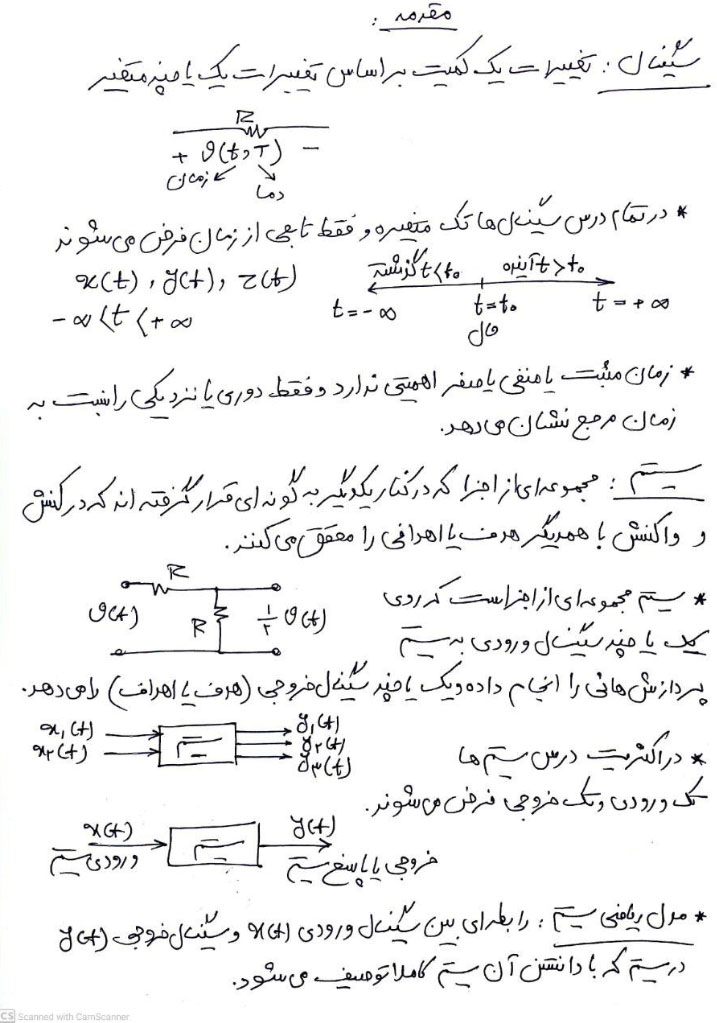 مقدمه :
سیگنال : تغییرات یک کمیت بر اساس تغییرات یک یا چند متغیر
R
+ v(t,T) −
زمان
دما
* در تمام درس سیگنال ها تک متغیره و فقط تابعی از زمان فرض می شوند
x(t) , y(t) , z(t)
−∞ < t < +∞
گذشته t<t₀
آینده t>t₀
t=−∞
t=t₀
t=+∞
حال
* زمان مثبت یا منفی یا صفر اهمیتی ندارد و فقط دوری یا نزدیکی را نسبت به
زمان مرجع نشان می دهد.
سیستم : مجموعه ای از اجزا که در کنار یکدیگر به گونه ای قرار گرفته اند که در کنش
و واکنش با همدیگر هدف یا اهدافی را محقق می کنند.
* سیستم مجموعه ای از اجزا است که روی
یک یا چند سیگنال ورودی به سیستم
پردازش هائی را انجام داده و یک یا چند سیگنال خروجی (هدف یا اهداف) را می دهد.
R
v(t)
R
۱/۲ v(t)
* در اکثریت درس سیستم ها
تک ورودی و تک خروجی فرض می شوند.
x₁(t)
x₂(t)
سیستم
y₁(t)
y₂(t)
y₃(t)
x(t)
ورودی سیستم
سیستم
y(t)
خروجی یا پاسخ سیستم
* مدل ریاضی سیستم : رابطه ای بین سیگنال ورودی x(t) و سیگنال خروجی y(t)
در سیستم که با دانستن آن سیستم کاملا توصیف می شود.
CS Scanned with CamScanner